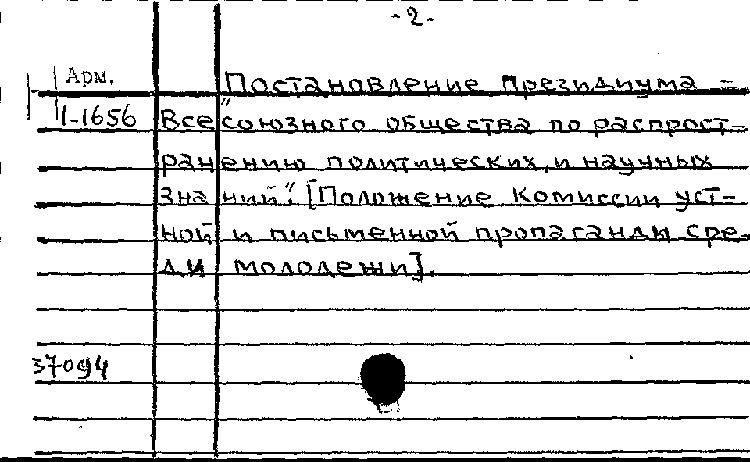 -2.
Арм.
1-1656
Постановление Президиума
"Всесоюзного общества по распрост-
ранению политических и научных
знаний". [Положение Комиссии уст-
ной и письменной пропаганды сре-
ди молодежи].
37094